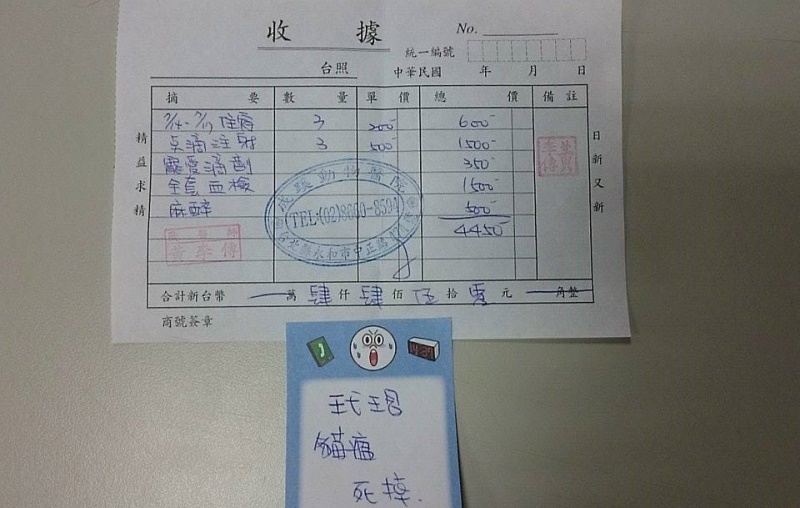 收據
No.
統一編號
台照 中華民國 年 月 日
摘要 數量 單價 總價 備註
住院 3 200 600
點滴注射 3 500 1500
寵愛滴劑 350
全套血檢 1500
麻醉 500
4450
精益求精
日新又新
動物醫院
TEL:(02)8660-8594
台北縣永和市中正路
合計新台幣 萬肆仟肆佰伍拾零元 角整
商號簽章
貓瘟
死掉.